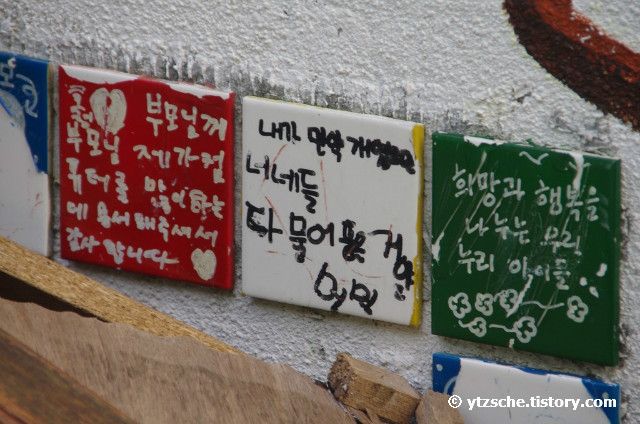 부모님께
부모님 제가컴
퓨터를 많이하는
데 용서해주셔서
감사 합니다
내가 만약 개였다면
너네들
다 물어 뜯을 거야
희망과 행복을
나누는 우리
누리 아이들
© ytzsche.tistory.com